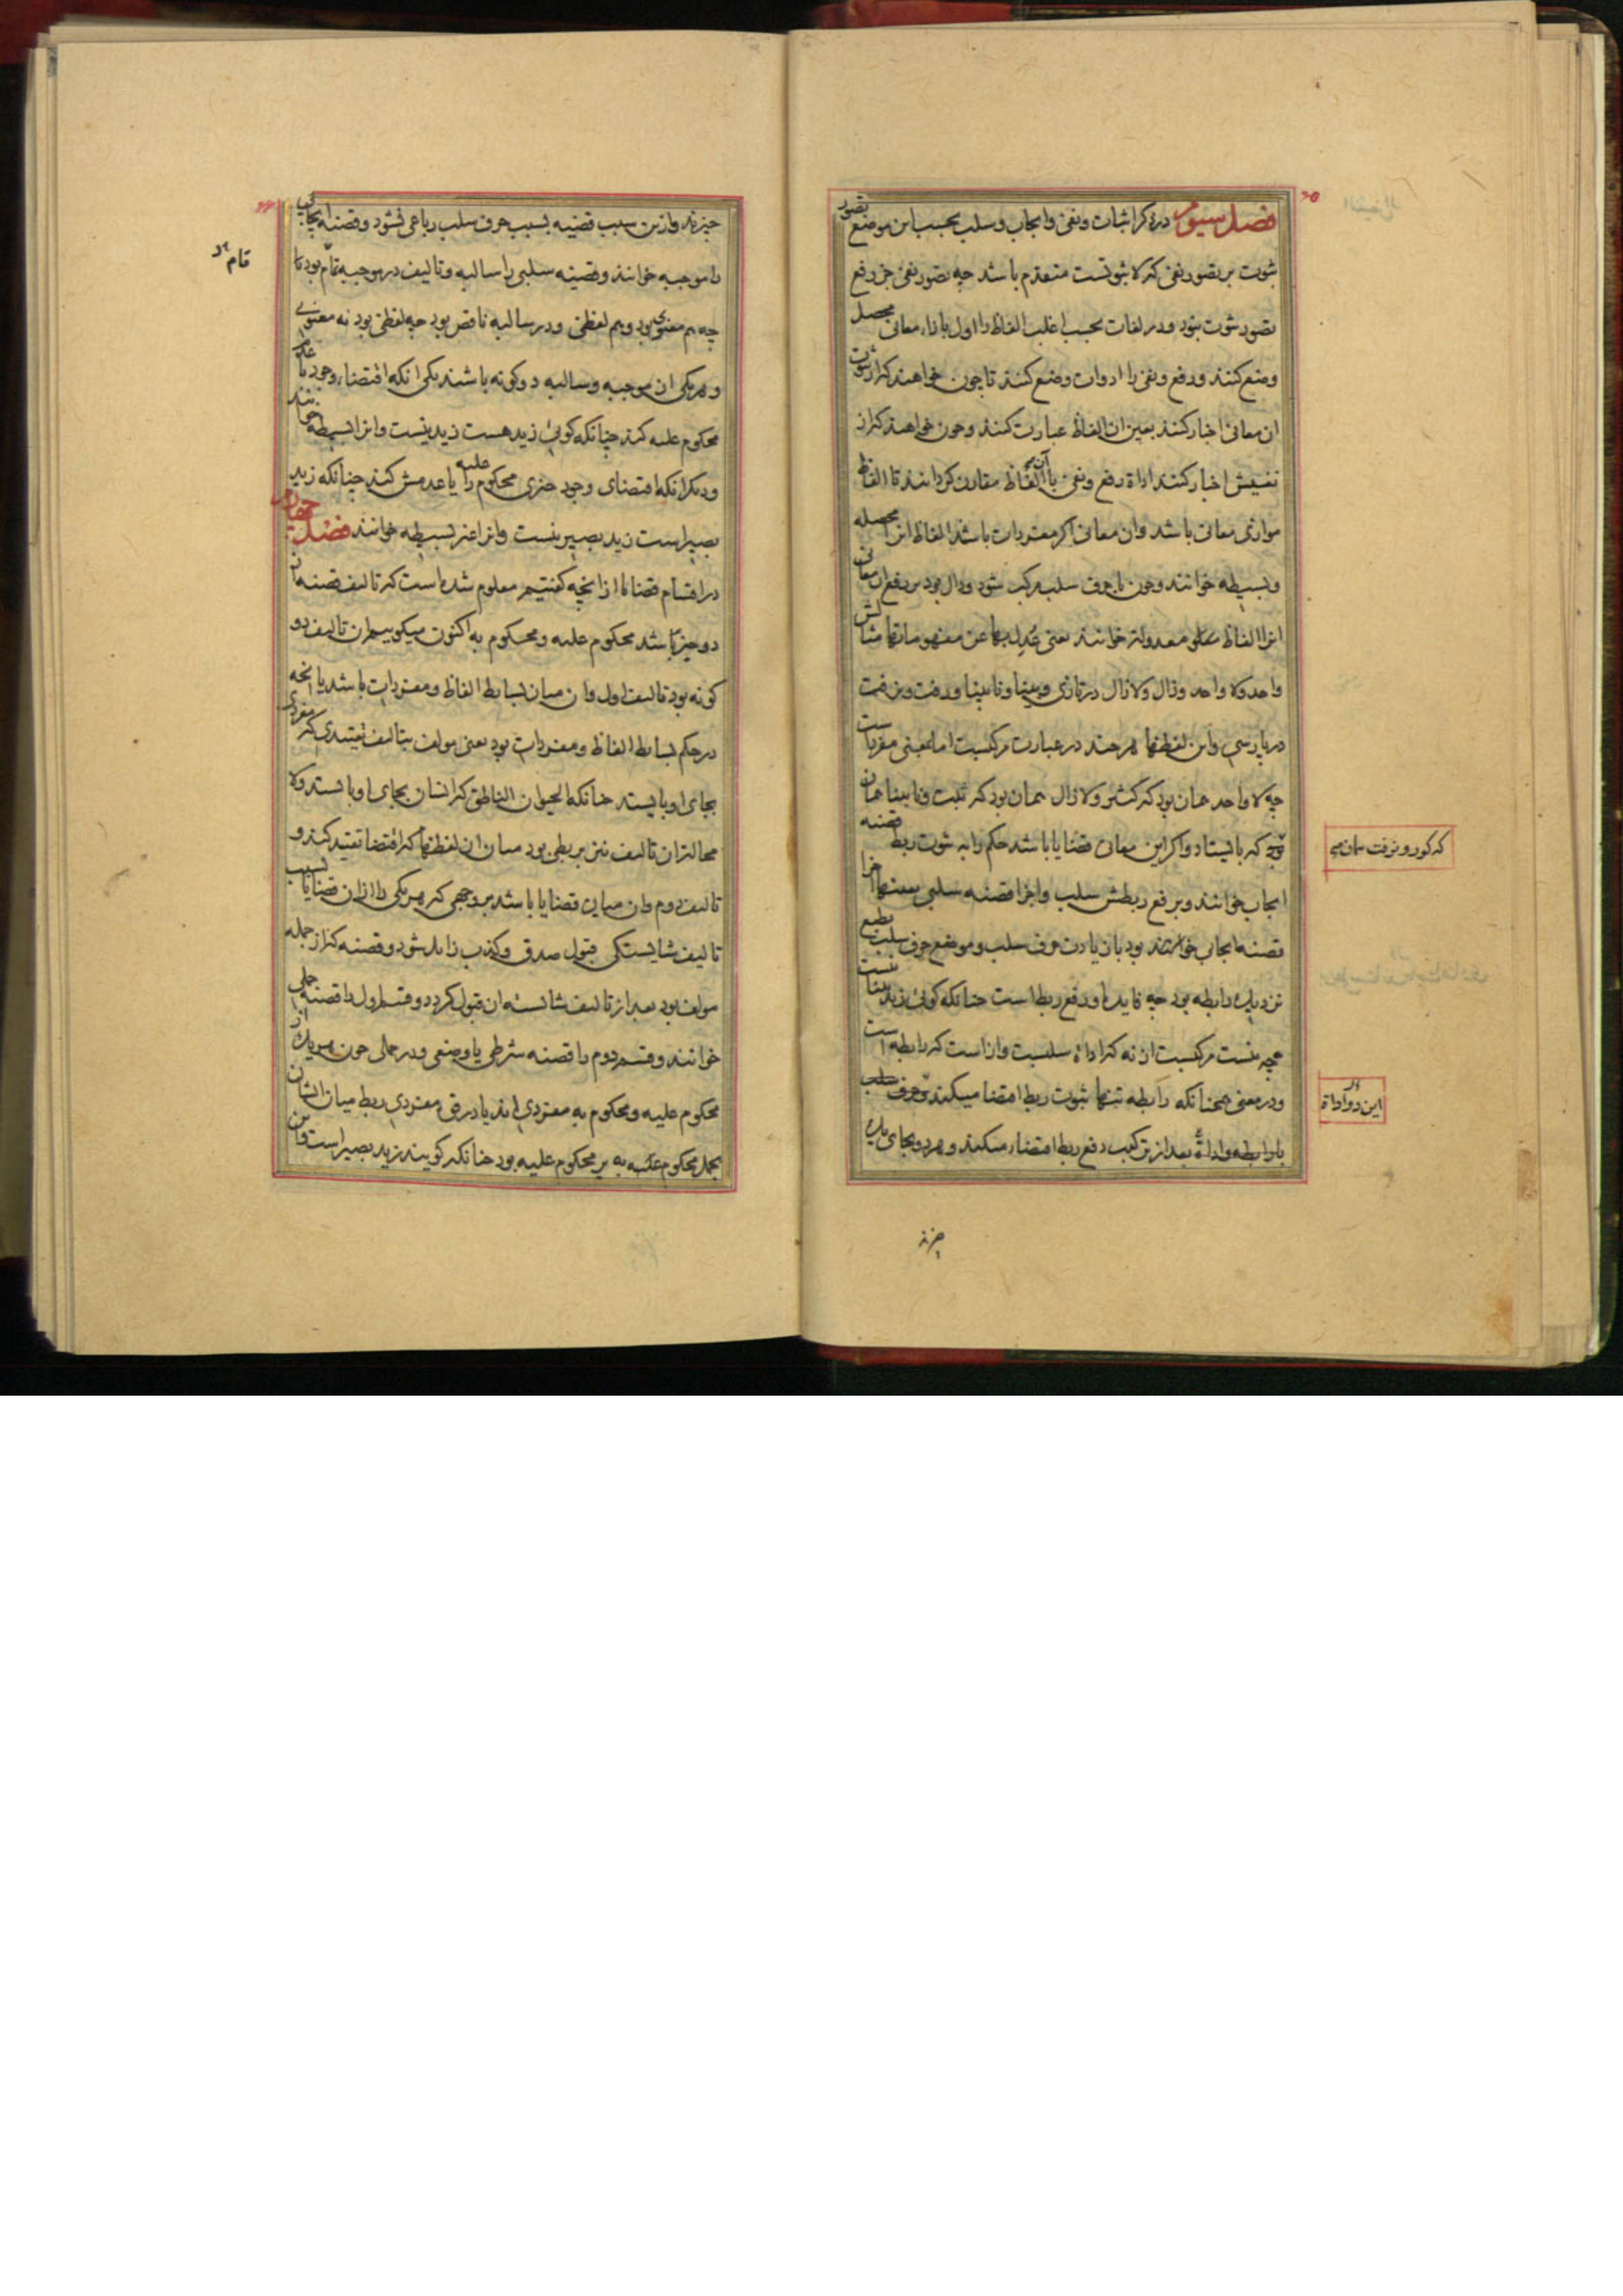 فصل سیوم در ذکر اثبات و نفی و ایجاب و سلب بحسب این موضع تصور
ثبوت بر تصور نفی که لا ثبوتست متقدم باشد چه تصور نفی جز رفع
تصور ثبوت نبود و در لغات بحسب اغلب الفاظ را اول بازاء معانی محصل
وضع کنند و رفع و نفی را ادوات وضع کنند تا چون خواهند که از ثبوت
ان معانی اخبار کنند بعین ان الفاظ عبارت کنند و چون خواهند که از
نفیش اخبار کنند اداة رفع و نفی با آن الفاظ مقارن کردانند تا الفاظ
موازی معانی باشد و ان معانی اکر مفردات باشد الفاظ انرا محصله
و بسیطه خوانند و چون با حرف سلب مرکب شود و دال بود بر رفع ان معانی
انرا الفاظ معدولة خوانند یعنی عدل بها عن مفهوماتها مثالش
واحد و لا واحد و زال و لا زال در تازی و بینا و نابینا و رفت و نرفت
در پارسی و این لفظها هر چند در عبارت مرکبست اما بمعنی مفردات
چه لا واحد همان بود که کثیر و لا زال همان بود که ثبت و نابینا همان
بود که بایستاد و اکر این معانی قضایا باشد حکم را به ثبوت ربط قضیه
ایجاب خوانند و بر رفع ربطش سلب و اجزا قضیه سلبی بعینها اجزا
قضیه ایجاب خوانند بود با زیادت حرف سلب و موضع حرف سلب بطبع
نزدیک رابطه بود چه فایده او رفع ربط است چنانکه کوئی زید بینا نیست
چه نیست مرکبست از نه که اداة سلبست و از است که رابطه است
و در معنی همچنانکه رابطه تنها ثبوت ربط اقتضا میکند و حرف سلب
با رابطه و اداة بعد از ترکیب رفع ربط اقتضاء میکند و هر دو بجای یک
که کور و نرفت همان می
این دو اداة
چیزند
چیزند و ازین سبب قضیه بسبب حرف سلب رباعی نشود و قضیه ایجابی
را موجبه خوانند و قضیه سلبی را سالبه و تالیف در موجبه تمام بود
چه هم معنوی بود و هم لفظی و در سالبه ناقص بود چه لفظی بود نه معنوی
و هر یکی از موجبه و سالبه دو کونه باشند یکی انکه اقتضاء وجود یا عدم
محکوم علیه کند چنانکه کوئی زید هست زید نیست و انرا بسیطه خوانند
و دیکر انکه اقتضای وجود چیزی محکوم علیه را یا عدمش کند چنانکه زید
بصیر است زید بصیر نیست و انرا غیر بسیطه خوانند فصل چهارم
در اقسام قضایا از انچه کفتیم معلوم شده است که تالیف قضیه از
دو چیز باشد محکوم علیه و محکوم به اکنون میکوییم ان تالیف دو
کونه بود تالیف اول و ان میان بسایط الفاظ و مفردات باشد یا انچه
در حکم بسایط الفاظ و مفردات بود یعنی مولف بتالیف تقییدی که مفردی
بجای او بایستد چنانکه الحیوان الناطق که انسان بجای او بایستد و لا
محاله ان تالیف نیز بربطی بود میان ان لفظها که اقتضا تقیید کند و
تالیف دوم و ان میان قضایا باشد بر وجهی که هر یکی را از ان قضایا بسبب
تالیف شایستکی قبول صدق و کذب زایل شود و قضیه که از جمله
مولف بود بعد از تالیف شایسته ان قبول کردد و قسم اول را قضیه حملی
خوانند و قسم دوم را قضیه شرطی یا وضعی و در حملی چون هر یک از
محکوم علیه و محکوم به مفردی اند یا در قوة مفردی ربط میان ایشان
بحمل محکوم به بر محکوم علیه بود چنانکه کویند زید بصیر است